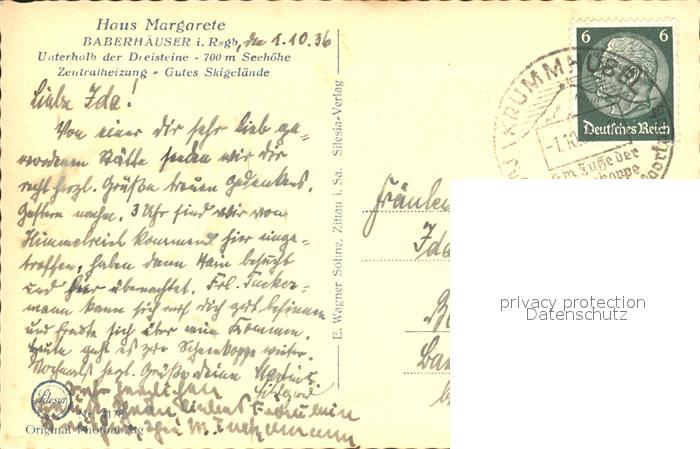 Haus Margarete
BABERHÄUSER i. Rsgb, den 1.10.36
Unterhalb der Dreisteine - 700 m Seehöhe
Zentralheizung - Gutes Skigelände
Liebe Ida!
Von einer dir sehr lieb ge-
wordenen Stätte senden wir dir
recht herzl. Grüße treuen Gedenkens.
Gestern nachm. 3 Uhr sind wir von
Himmelreich kommend hier einge-
troffen, haben dann Hain besucht
und hier übernachtet. Frl. Tucker-
mann kann sich noch dich gut besinnen
und freute sich über mein Kommen.
Heute geht es zur Schneekoppe weiter.
Nochmals herzl. Grüße deine
Sehr herzlichen
M. Tuckermann
Silesia
Original Photoabzug
E. Wagner Söhne, Zittau i. Sa. Silesia-Verlag
6 6
Deutsches Reich
KRUMMHÜBEL
-1.10.
Am Fuße der
koppe
Fräulein
Ida
privacy protection
Datenschutz